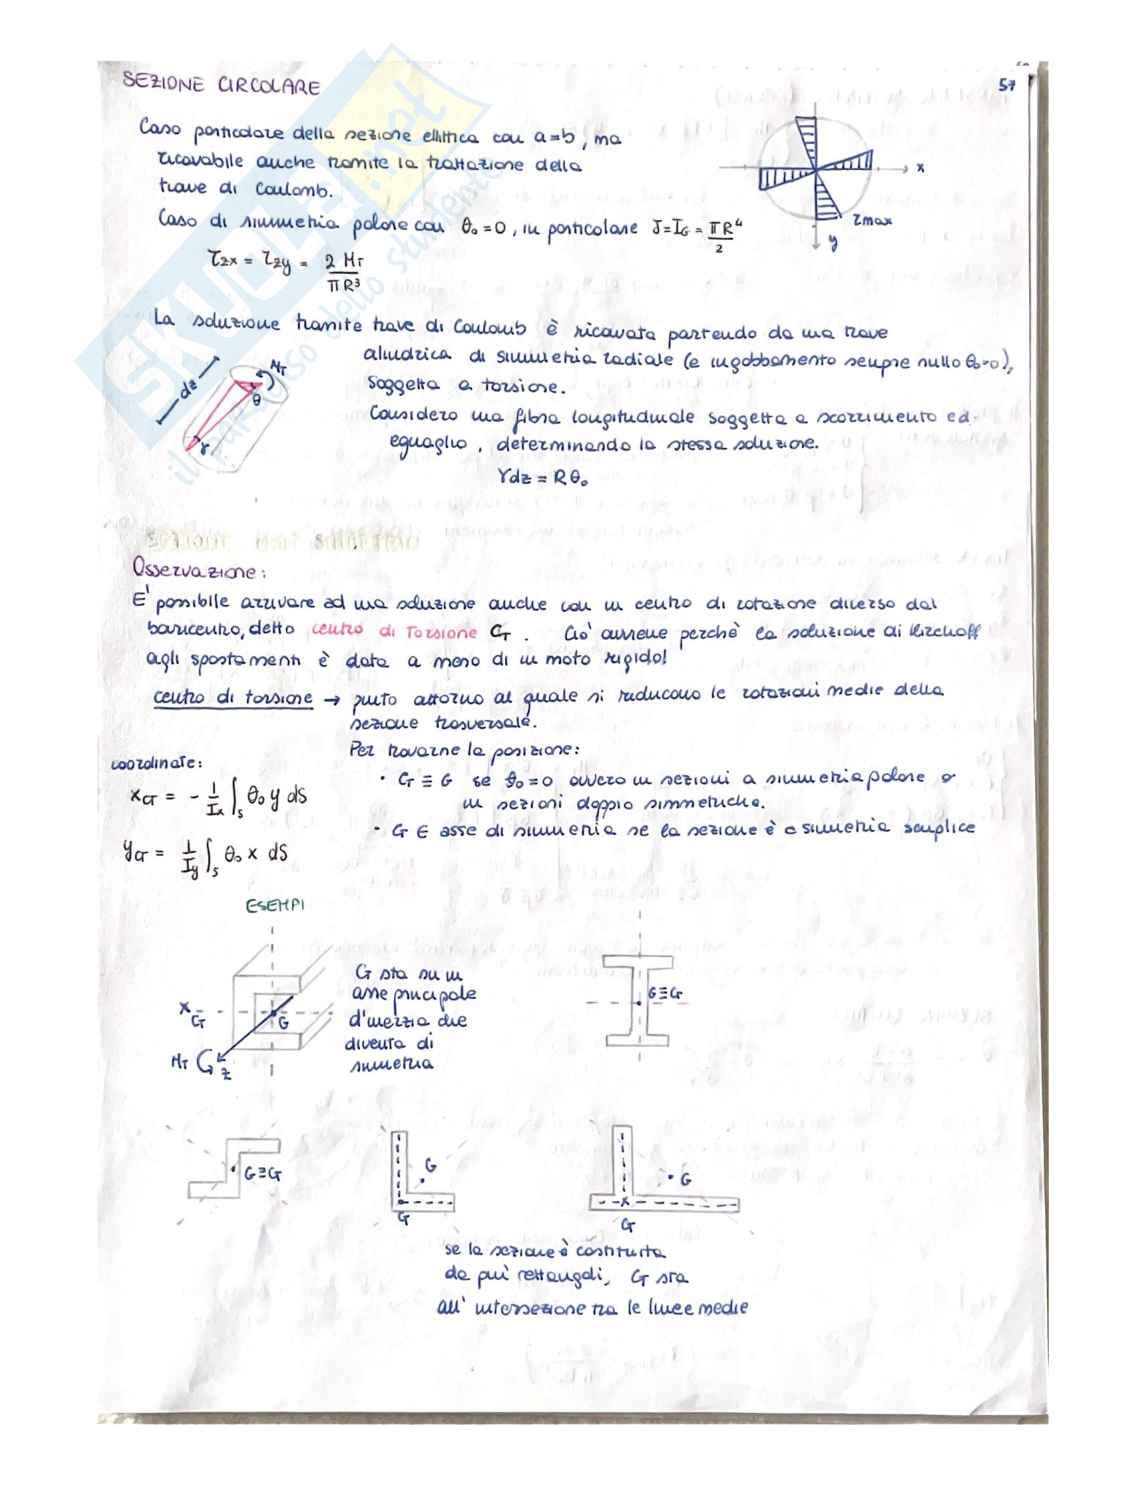 SEZIONE CIRCOLARE
57
Caso particolare della sezione ellittica con a=b, ma
ricavabile anche tramite la trattazione della
trave di Coulomb.
x
τmax
y
Caso di simmetria polare con θ₀=0, in particolare J=I_G = πR⁴/2
τzx = τzy = 2 M_T / πR³
La soluzione tramite trave di Coulomb è ricavata partendo da una trave
cilindrica di simmetria radiale (e ingobbamento sempre nullo θ₀=0),
soggetta a torsione.
Considero una fibra longitudinale soggetta a scorrimento ed
eguaglio, determinando la stessa soluzione.
γdz = Rθ₀
dz
M_T
θ
γ
Osservazione:
E' possibile arrivare ad una soluzione anche con un centro di rotazione diverso dal
baricentro, detto centro di Torsione C_T. Ciò avviene perchè la soluzione di Kirchoff
agli spostamenti è data a meno di un moto rigido!
centro di torsione → punto attorno al quale si riducono le rotazioni medie della
sezione trasversale.
Per trovarne la posizione:
• C_T ≡ G se θ₀=0 ovvero in sezioni a simmetria polare o
in sezioni doppio simmetriche.
• C_T ∈ asse di simmetria se la sezione è a simmetria semplice
coordinate:
x_CT = - 1/Ix ∫s θ₀ y dS
y_CT = 1/Iy ∫s θ₀ x dS
ESEMPI
C_T sta su un
asse principale
d'inerzia che
diventa di
simmetria
x
C_T
G
M_T
z
G≡C_T
G≡C_T
G
C_T
G
x
C_T
se la sezione è costituita
da più rettangoli, C_T sta
all'intersezione tra le linee medie
SKUOLA.net